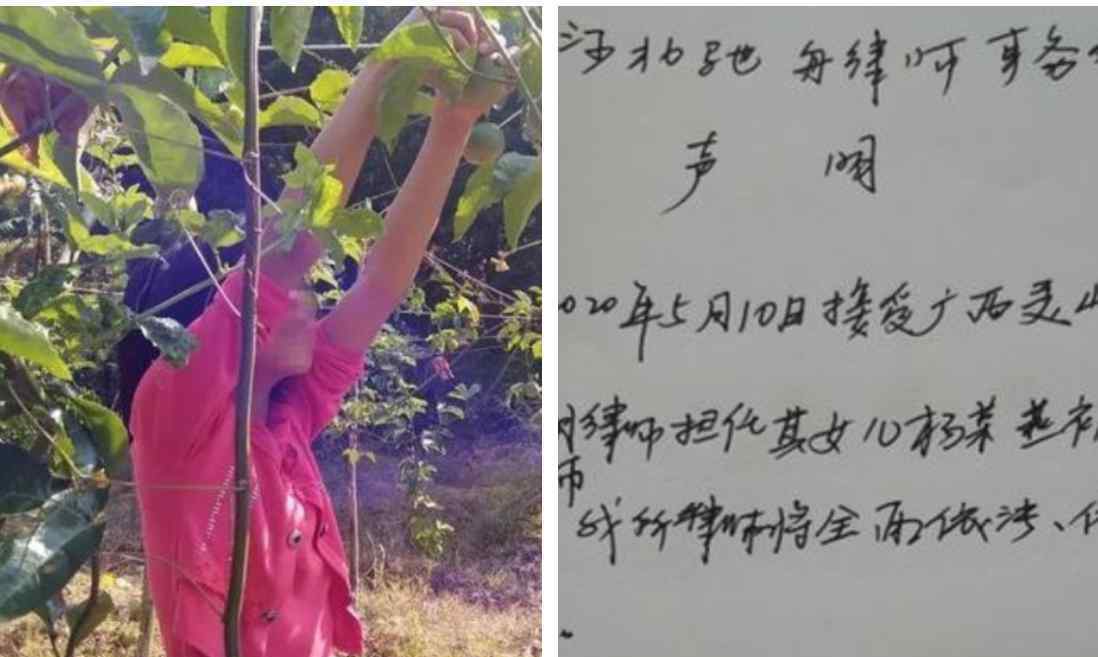 河北驰舟律师事务
声 明
020年5月10日接受广西灵山
律师担任其女儿杨某燕
师
我所律师将全面依法、